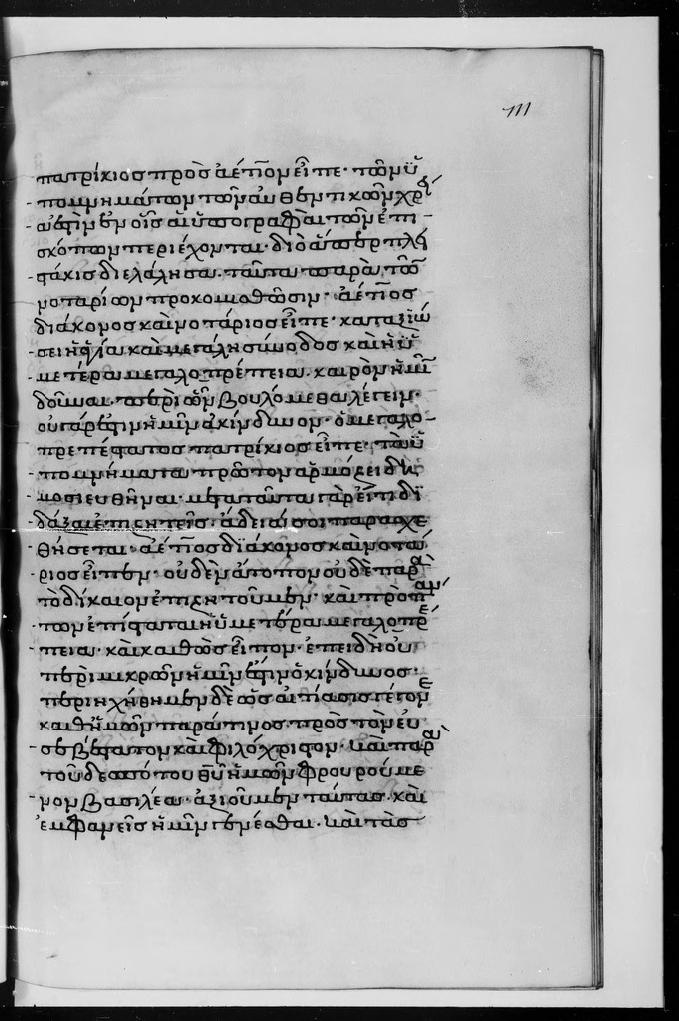 111
πατρίκιος πρὸς ἀέτιον εἶπε· τῶν ὑ
πομνημάτων τῶν αὐθεντικῶν χρεί
α ἐστὶν ἐν οἷς αἱ ὑπογραφαὶ τῶν ἐπι
σκόπων περιέχονται· διὸ ἅπερ πλε
στάκις διελάλησα. ταῦτα παρὰ τῶν
νοταρίων προκομισθῶσιν· ἀέτιος
διάκονος καὶ νοτάριος εἶπε· καταξιώ
σει ἡ ἁγία καὶ μεγάλη σύνοδος καὶ ἡ ὑ
μετέρα μεγαλοπρέπεια. καιρὸν ἡμῖν
δοῦναι. περὶ ὧν βουλόμεθα λέγειν·
οὐ γάρ ἐστιν ἡμῖν ἀκίνδυνον· ὁ μεγαλο
πρεπέστατος πατρίκιος εἶπε· τὰ ὑ
πομνήματα πρῶτον ἁρμόζει δη
μοσιευθῆναι· μετὰ ταῦτα γὰρ εἴ τι δι
δάξαι ἐπιζητεῖς· ἄδειά σοι παρασχε
θήσεται· ἀέτιος διάκονος καὶ νοτά
ριος εἶπεν· οὐδὲν ἄτοπον οὐδὲ παρὰ
τὸ δίκαιον ἐπιζητοῦμεν· καὶ πρὸ πάν
των ἐπίσταται ἡ ὑμετέρα μεγαλοπρέ
πεια· καὶ καθὼς εἶπον· ἐπειδὴ οὐ
περὶ μικρῶν ἡμῖν ἐστιν ὁ κίνδυνος·
περιηχήθημεν δὲ ὡς αἰτίασις γέγονε
καθ' ἡμῶν παράτιμος πρὸς τὸν εὐ
σεβέστατον καὶ φιλόχριστον· καὶ παρὰ
τοῦ δεσπότου θυ ἡμῶν φρουρούμε
νον βασιλέα· ἀξιοῦμεν ταύτας. καὶ
ἐμφανεῖς ἡμῖν γενέσθαι. καὶ τὰς